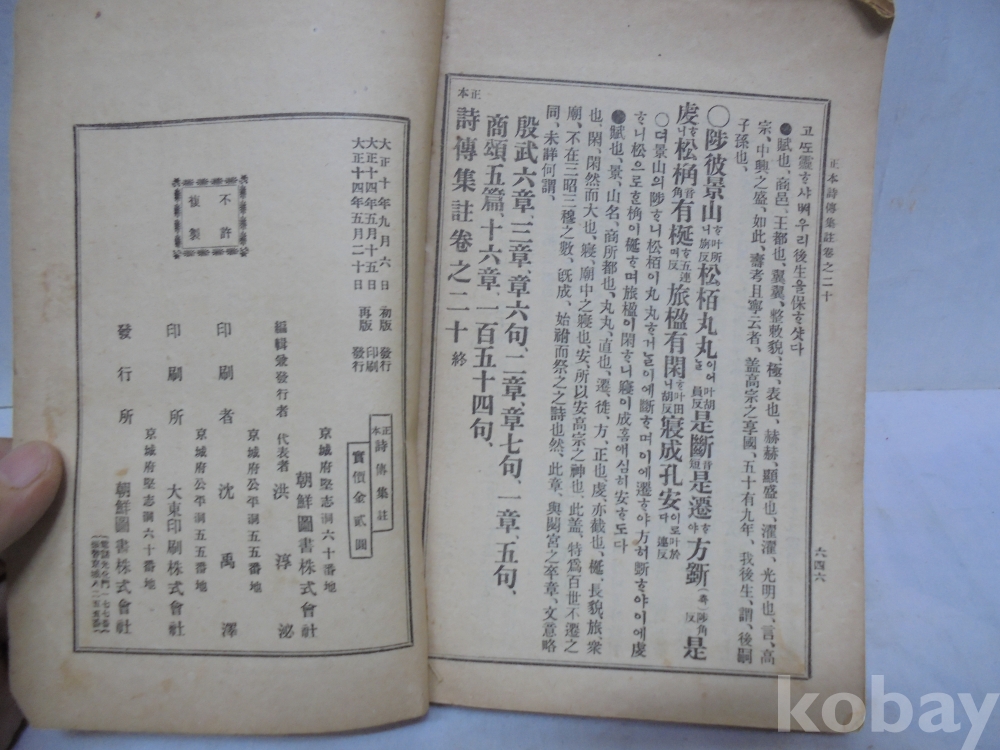 正本詩傳集註卷之二十
六四六
고또靈ᄒᆞ샤ᄡᅥ우리後生을保ᄒᆞ샷다
賦也、商邑、王都也、翼翼、整敕貌、極、表也、赫赫、顯盛也、濯濯、光明也、言、高
宗、中興之盛、如此、壽考且寧云者、盖高宗之享國、五十有九年、我後生、謂、後嗣
子孫也、
○陟彼景山ᄒᆞ니松栢丸丸이어ᄂᆞᆯ是斷是遷ᄒᆞ야方斲是
虔ᄒᆞ니松桷有梴ᄒᆞ며旅楹有閑ᄒᆞ니寢成孔安이로다
○뎌景山의陟ᄒᆞ니松栢이丸丸ᄒᆞ거ᄂᆞᆯ이에斷ᄒᆞ며이에遷ᄒᆞ야方히斲ᄒᆞ야이에虔
ᄒᆞ니松으로ᄒᆞᆫ桷이梴ᄒᆞ며旅楹이閑ᄒᆞ니寢이成홈애심히安ᄒᆞ도다
●賦也、景、山名、商所都也、丸丸、直也、遷、徙、方、正也、虔、亦截也、梴、長貌、旅、衆
也、閑、閑然而大也、寢、廟中之寢也、安、所以安高宗之神也、此盖、特爲百世不遷之
廟、不在三昭三穆之數、旣成、始祔而祭之之詩也、然、此章、與閟宮之卒章、文意略
同、未詳何謂、
殷武六章、三章、章六句、二章、章七句、一章、五句、
商頌五篇、十六章、一百五十四句、
正本 詩傳集註卷之二十 終
大正十年九月六日 初版 發行
大正十四年五月十五日 再版 印刷
大正十四年五月二十日 發行
不許
複製
正本 詩傳集註
實價金貳圓
京城府堅志洞六十番地
朝鮮圖書株式會社
編輯兼發行者 代表者 洪淳泌
京城府公平洞五五番地
印刷者 沈禹澤
京城府公平洞五五番地
印刷所 大東印刷株式會社
京城府堅志洞六十番地
發行所 朝鮮圖書株式會社
kobay